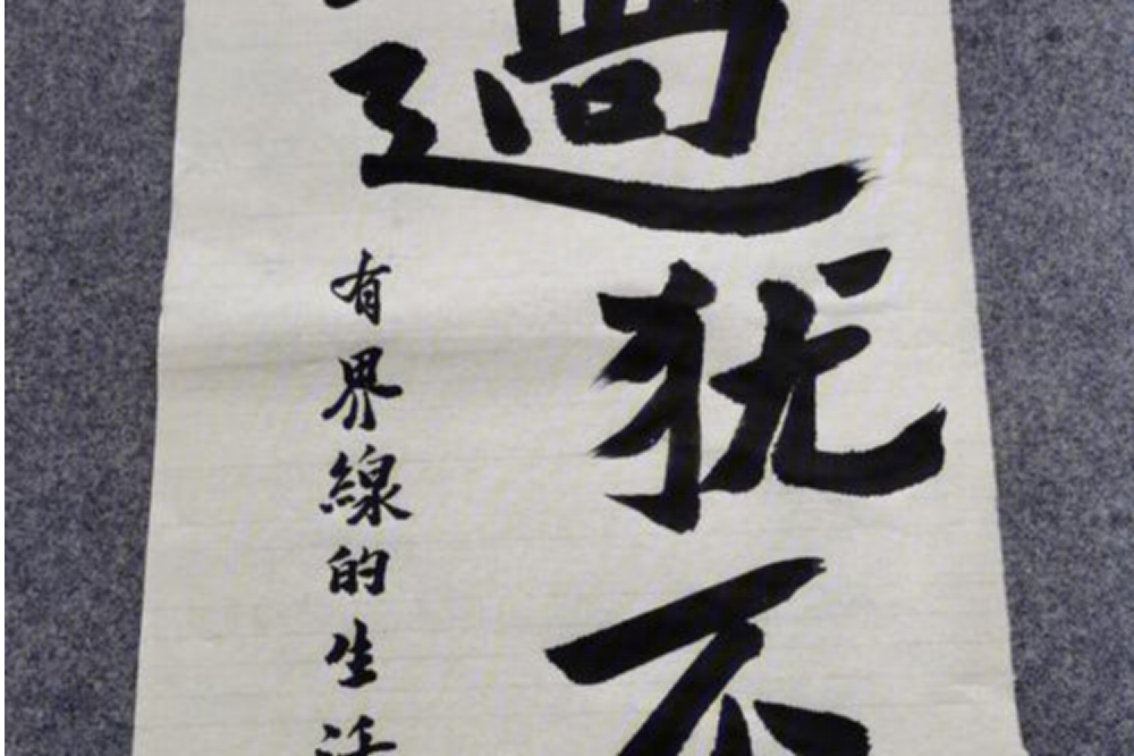 過猶不
有界線的生活